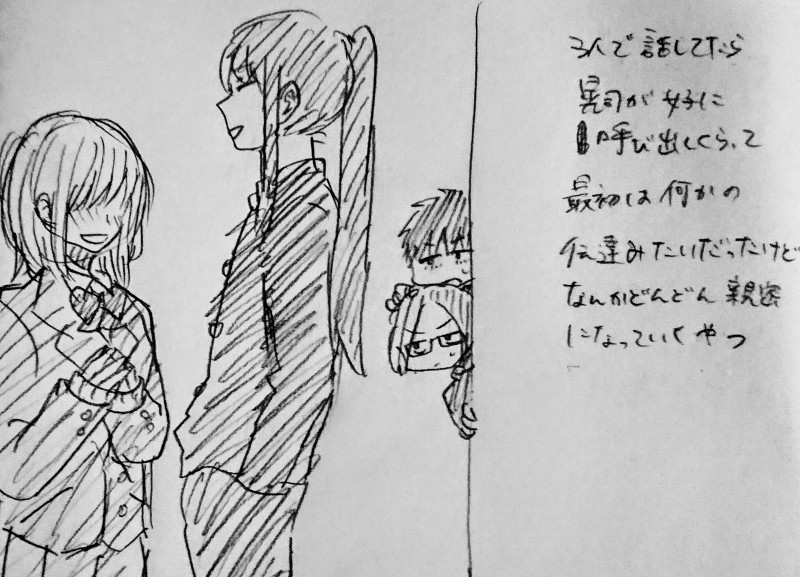 3人で話してたら
晃司が女子に
呼び出しくらって
最初は何かの
伝達みたいだったけど
なんかどんどん親密
になっていくやつ